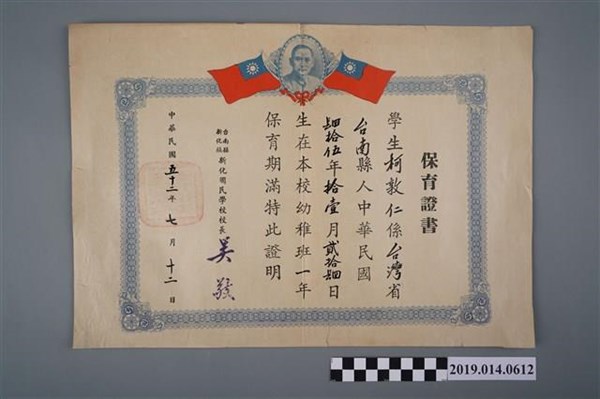 保育證書
學生柯敦仁係台灣省
台南縣人中華民國
肆拾伍年拾壹月貳拾肆日
生在本校幼稚班一年
保育期滿特此證明
台南縣
新化鎮
新化國民學校校長
吳
中華民國五十二年七月十二日
2019.014.0612